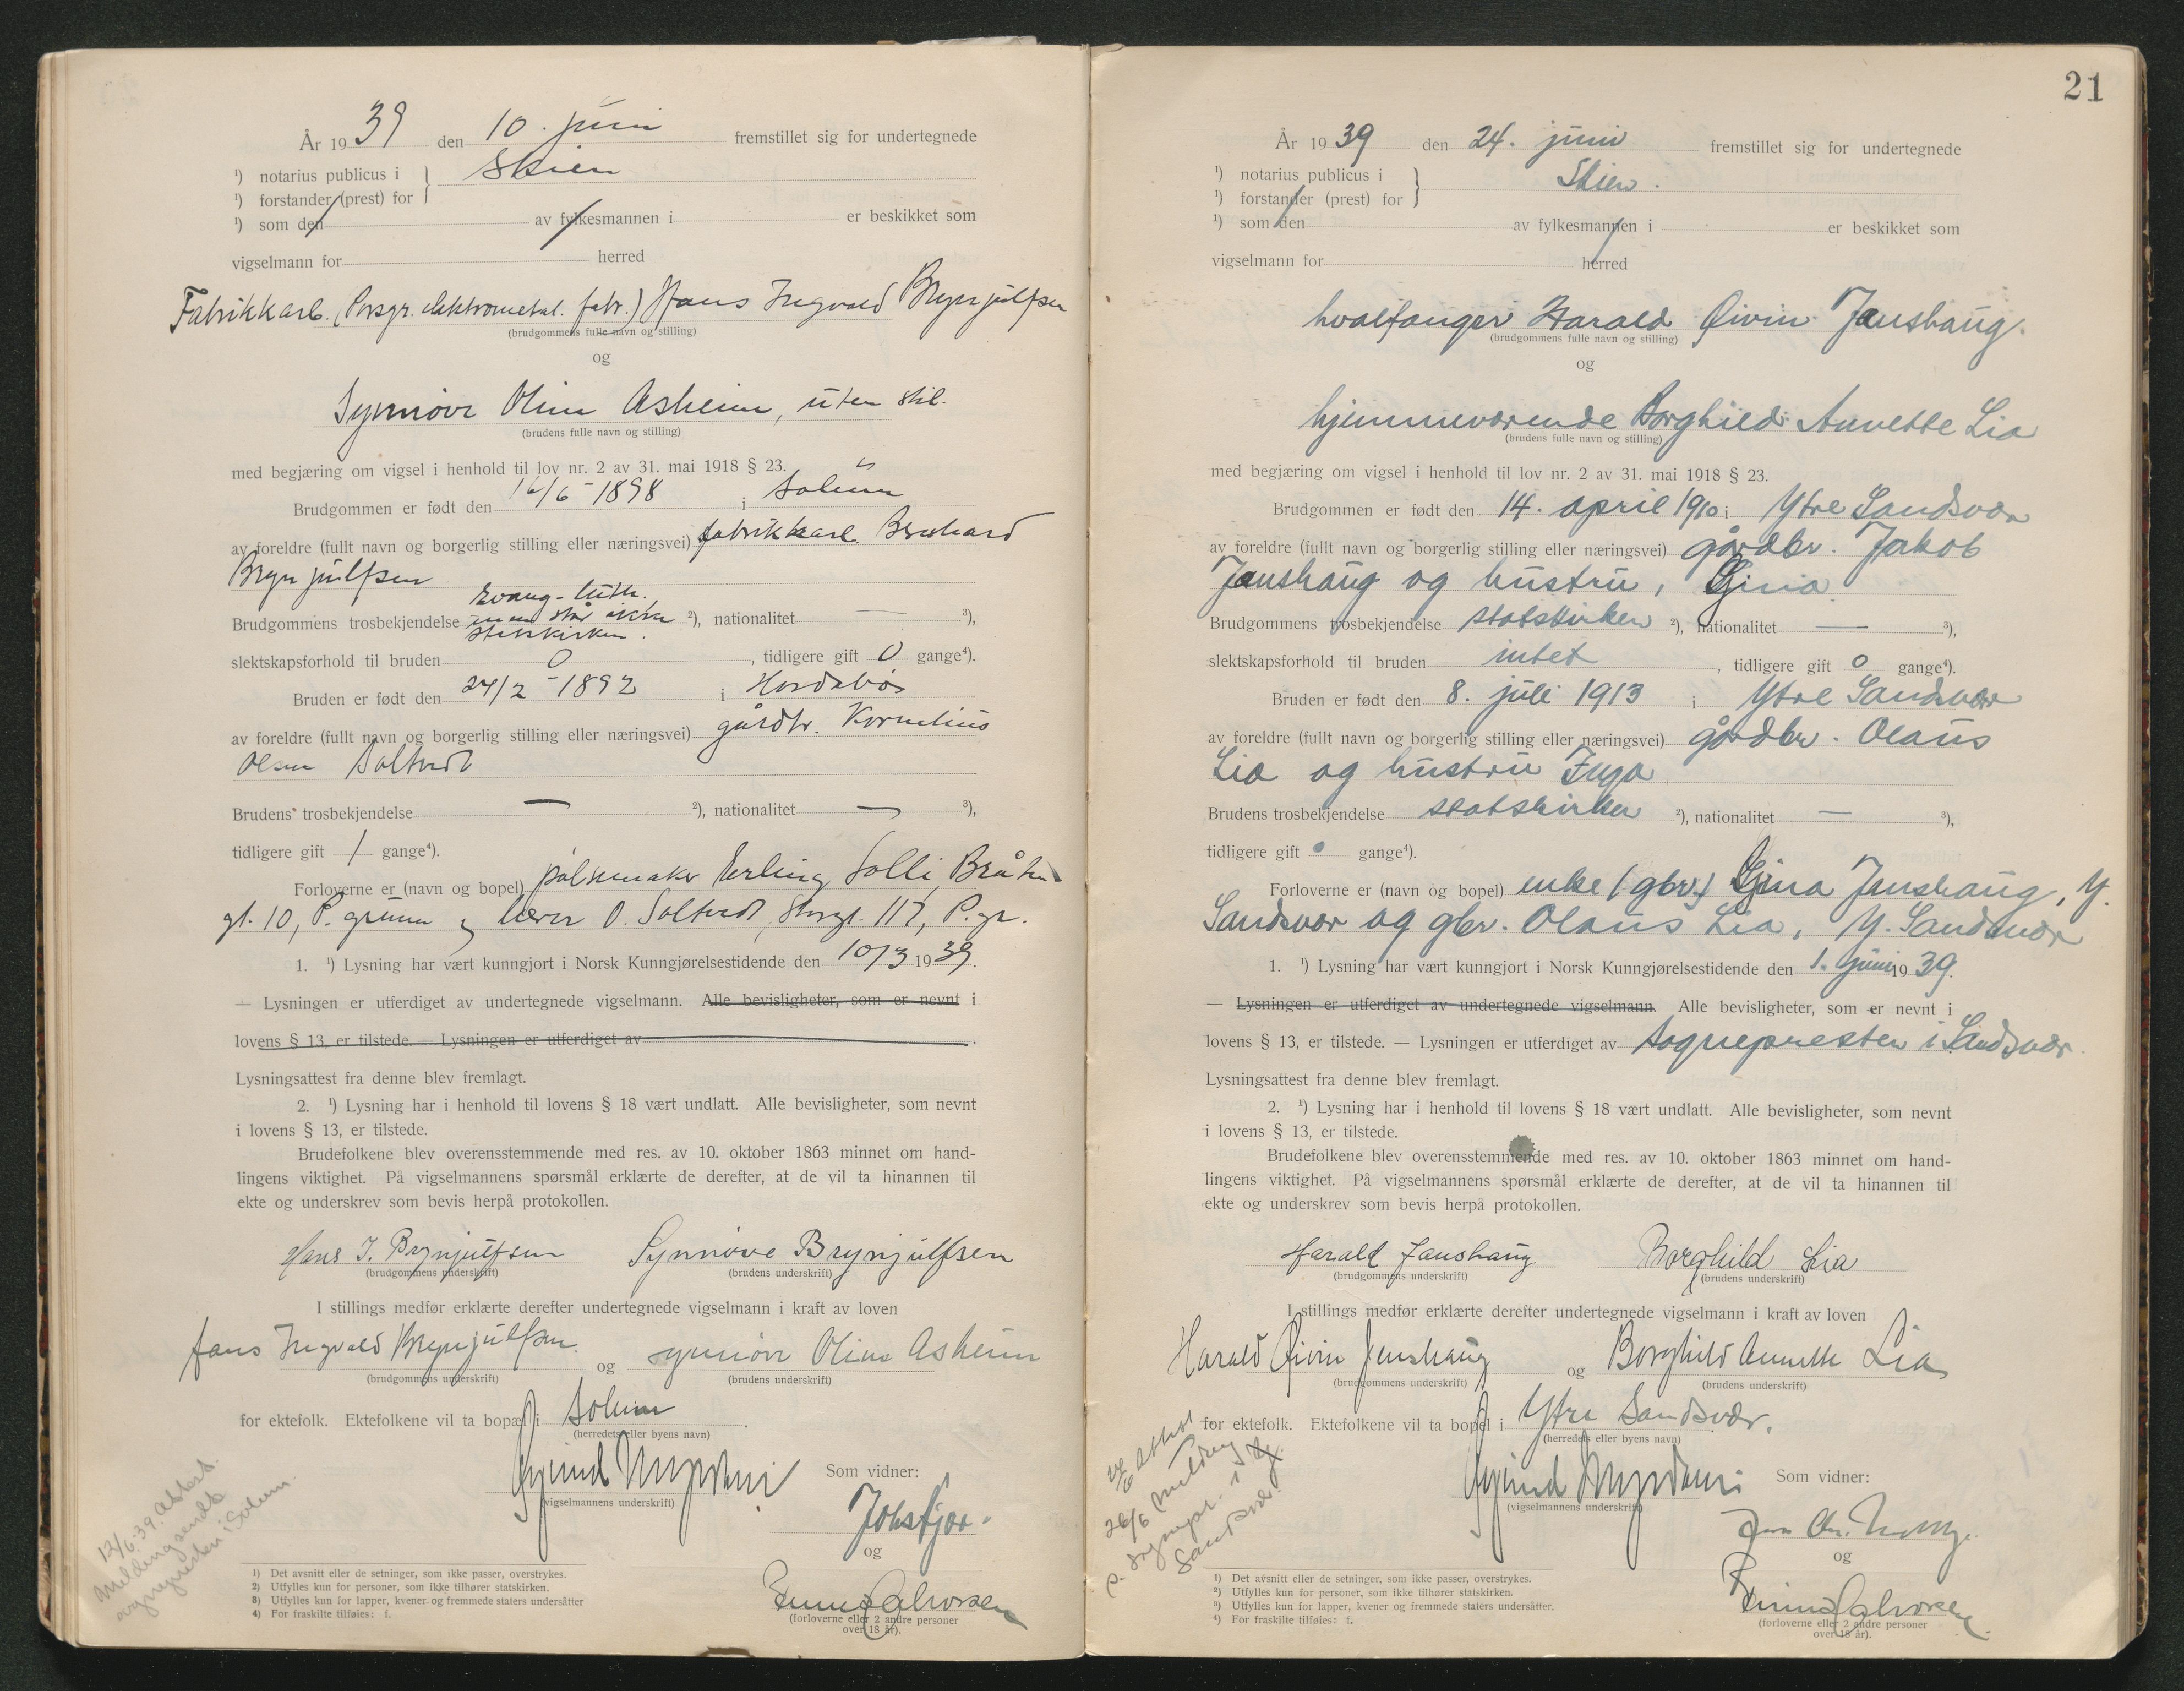 År 1939 den 10. juni fremstillet sig for undertegnede
¹) notarius publicus i } Skien
¹) forstander (prest) for
¹) som den av fylkesmannen i er beskikket som
vigselmann for herred
Fabrikkarb. (Porsgr. elektrometal. fabr.) Hans Ingvald Brynjulfsen
(brudgommens fulle navn og stilling)
og
Synnöve Oline Asheim, uten stil.
(brudens fulle navn og stilling)
med begjæring om vigsel i henhold til lov nr. 2 av 31. mai 1918 § 23.
Brudgommen er født den 16/6-1898 i Solum
av foreldre (fullt navn og borgerlig stilling eller næringsvei) fabrikkarb. Bernhard
Brynjulfsen
Brudgommens trosbekjendelse Evang-luth. men står ikke statskirken. ²), nationalitet — ³),
slektskapsforhold til bruden 0, tidligere gift 0 gange⁴).
Bruden er født den 24/2-1892 i Hordabø
av foreldre (fullt navn og borgerlig stilling eller næringsvei) gårdbr. Kornelius
Olsen Soltvedt
Brudens trosbekjendelse — ²), nationalitet — ³),
tidligere gift 1 gange⁴).
Forloverne er (navn og bopel) pølsemaker Erling Solli, Bråten
gt. 10, P. grunn og lærer O. Soltvedt, Storgt. 117, P.gr.
1. ¹) Lysning har vært kunngjort i Norsk Kunngjørelsestidende den 10/3 1939.
— Lysningen er utferdiget av undertegnede vigselmann. Alle bevisligheter, som er nevnt i
lovens § 13, er tilstede. — Lysningen er utferdiget av
Lysningsattest fra denne blev fremlagt.
2. ¹) Lysning har i henhold til lovens § 18 vært undlatt. Alle bevisligheter, som nevnt
i lovens § 13, er tilstede.
Brudefolkene blev overensstemmende med res. av 10. oktober 1863 minnet om hand-
lingens viktighet. På vigselmannens spørsmål erklærte de derefter, at de vil ta hinannen til
ekte og underskrev som bevis herpå protokollen.
Hans I. Brynjulfsen Synnøve Brynjulfsen
(brudgommens underskrift) (brudens underskrift)
I stillings medfør erklærte derefter undertegnede vigselmann i kraft av loven
Hans Ingvald Brynjulfsen og Synnöve Oline Asheim
(brudgommens underskrift) (brudens underskrift)
for ektefolk. Ektefolkene vil ta bopæl i Solum
(herredets eller byens navn)
Som vidner:
(vigselmannens underskrift)
og
(forloverne eller 2 andre personer
over 18 år).
12/6.39. attest.
Melding sendt
sognepresten i Solum.
1) Det avsnitt eller de setninger, som ikke passer, overstrykes.
2) Utfylles kun for personer, som ikke tilhører statskirken.
3) Utfylles kun for lapper, kvener og fremmede staters undersåtter
4) For fraskilte tilføies: f.
21
År 1939 den 24. juni fremstillet sig for undertegnede
¹) notarius publicus i } Skien.
¹) forstander (prest) for
¹) som den av fylkesmannen i er beskikket som
vigselmann for herred
hvalfanger Harald Øivin Janshaug.
(brudgommens fulle navn og stilling)
og
hjemmeværende Borghild Annette Lia
(brudens fulle navn og stilling)
med begjæring om vigsel i henhold til lov nr. 2 av 31. mai 1918 § 23.
Brudgommen er født den 14. april 1910 i Ytre Sandsvær
av foreldre (fullt navn og borgerlig stilling eller næringsvei) gårdbr. Jakob
Janshaug og hustru, Gina
Brudgommens trosbekjendelse statskirken ²), nationalitet — ³),
slektskapsforhold til bruden intet, tidligere gift 0 gange⁴).
Bruden er født den 8. juli 1913 i Ytre Sandsvær
av foreldre (fullt navn og borgerlig stilling eller næringsvei) gårdbr. Olaus
Lia og hustru Inga
Brudens trosbekjendelse statskirken ²), nationalitet — ³),
tidligere gift 0 gange⁴).
Forloverne er (navn og bopel) enke (gbr.) Gina Janshaug, Y.
Sandsvær og gbr. Olaus Lia, Y. Sandsvær
1. ¹) Lysning har vært kunngjort i Norsk Kunngjørelsestidende den 1. juni 1939.
— Lysningen er utferdiget av undertegnede vigselmann. Alle bevisligheter, som er nevnt i
lovens § 13, er tilstede. — Lysningen er utferdiget av sognepresten i Sandsvær.
Lysningsattest fra denne blev fremlagt.
2. ¹) Lysning har i henhold til lovens § 18 vært undlatt. Alle bevisligheter, som nevnt
i lovens § 13, er tilstede.
Brudefolkene blev overensstemmende med res. av 10. oktober 1863 minnet om hand-
lingens viktighet. På vigselmannens spørsmål erklærte de derefter, at de vil ta hinannen til
ekte og underskrev som bevis herpå protokollen.
Harald Janshaug Borghild Lia
(brudgommens underskrift) (brudens underskrift)
I stillings medfør erklærte derefter undertegnede vigselmann i kraft av loven
Harald Øivin Janshaug og Borghild Annette Lia
(brudgommens underskrift) (brudens underskrift)
for ektefolk. Ektefolkene vil ta bopel i Ytre Sandsvær.
(herredets eller byens navn)
Som vidner:
(vigselmannens underskrift)
og
(forloverne eller 2 andre personer
over 18 år).
24/6 Attest
26/6 melding
t. sognepr. i Y.
Sandsvær.
¹) Det avsnitt eller de setninger, som ikke passer, overstrykes.
²) Utfylles kun for personer, som ikke tilhører statskirken.
³) Utfylles kun for lapper, kvener og fremmede staters undersåtter.
⁴) For fraskilte tilføies: f.